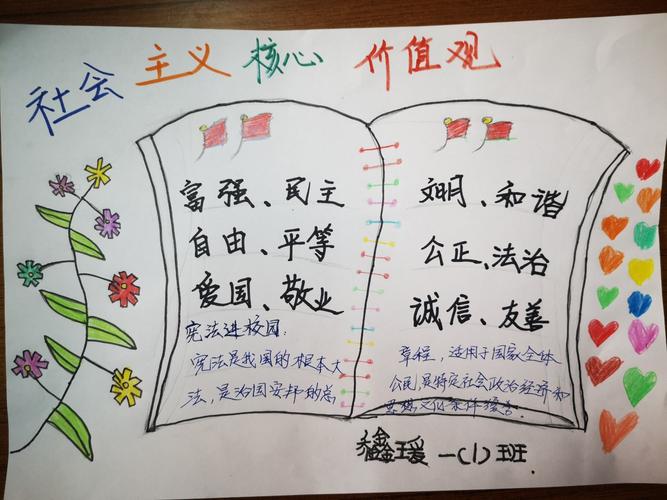 社会主义核心价值观
富强、民主
自由、平等
爱国、敬业
宪法进校园:
宪法是我国的根本大
法,是治国安邦的总
文明、和谐
公正、法治
诚信、友善
章程,适用于国家全体
公民,是特定社会政治经济和
思想文化条件综合
一(1)班